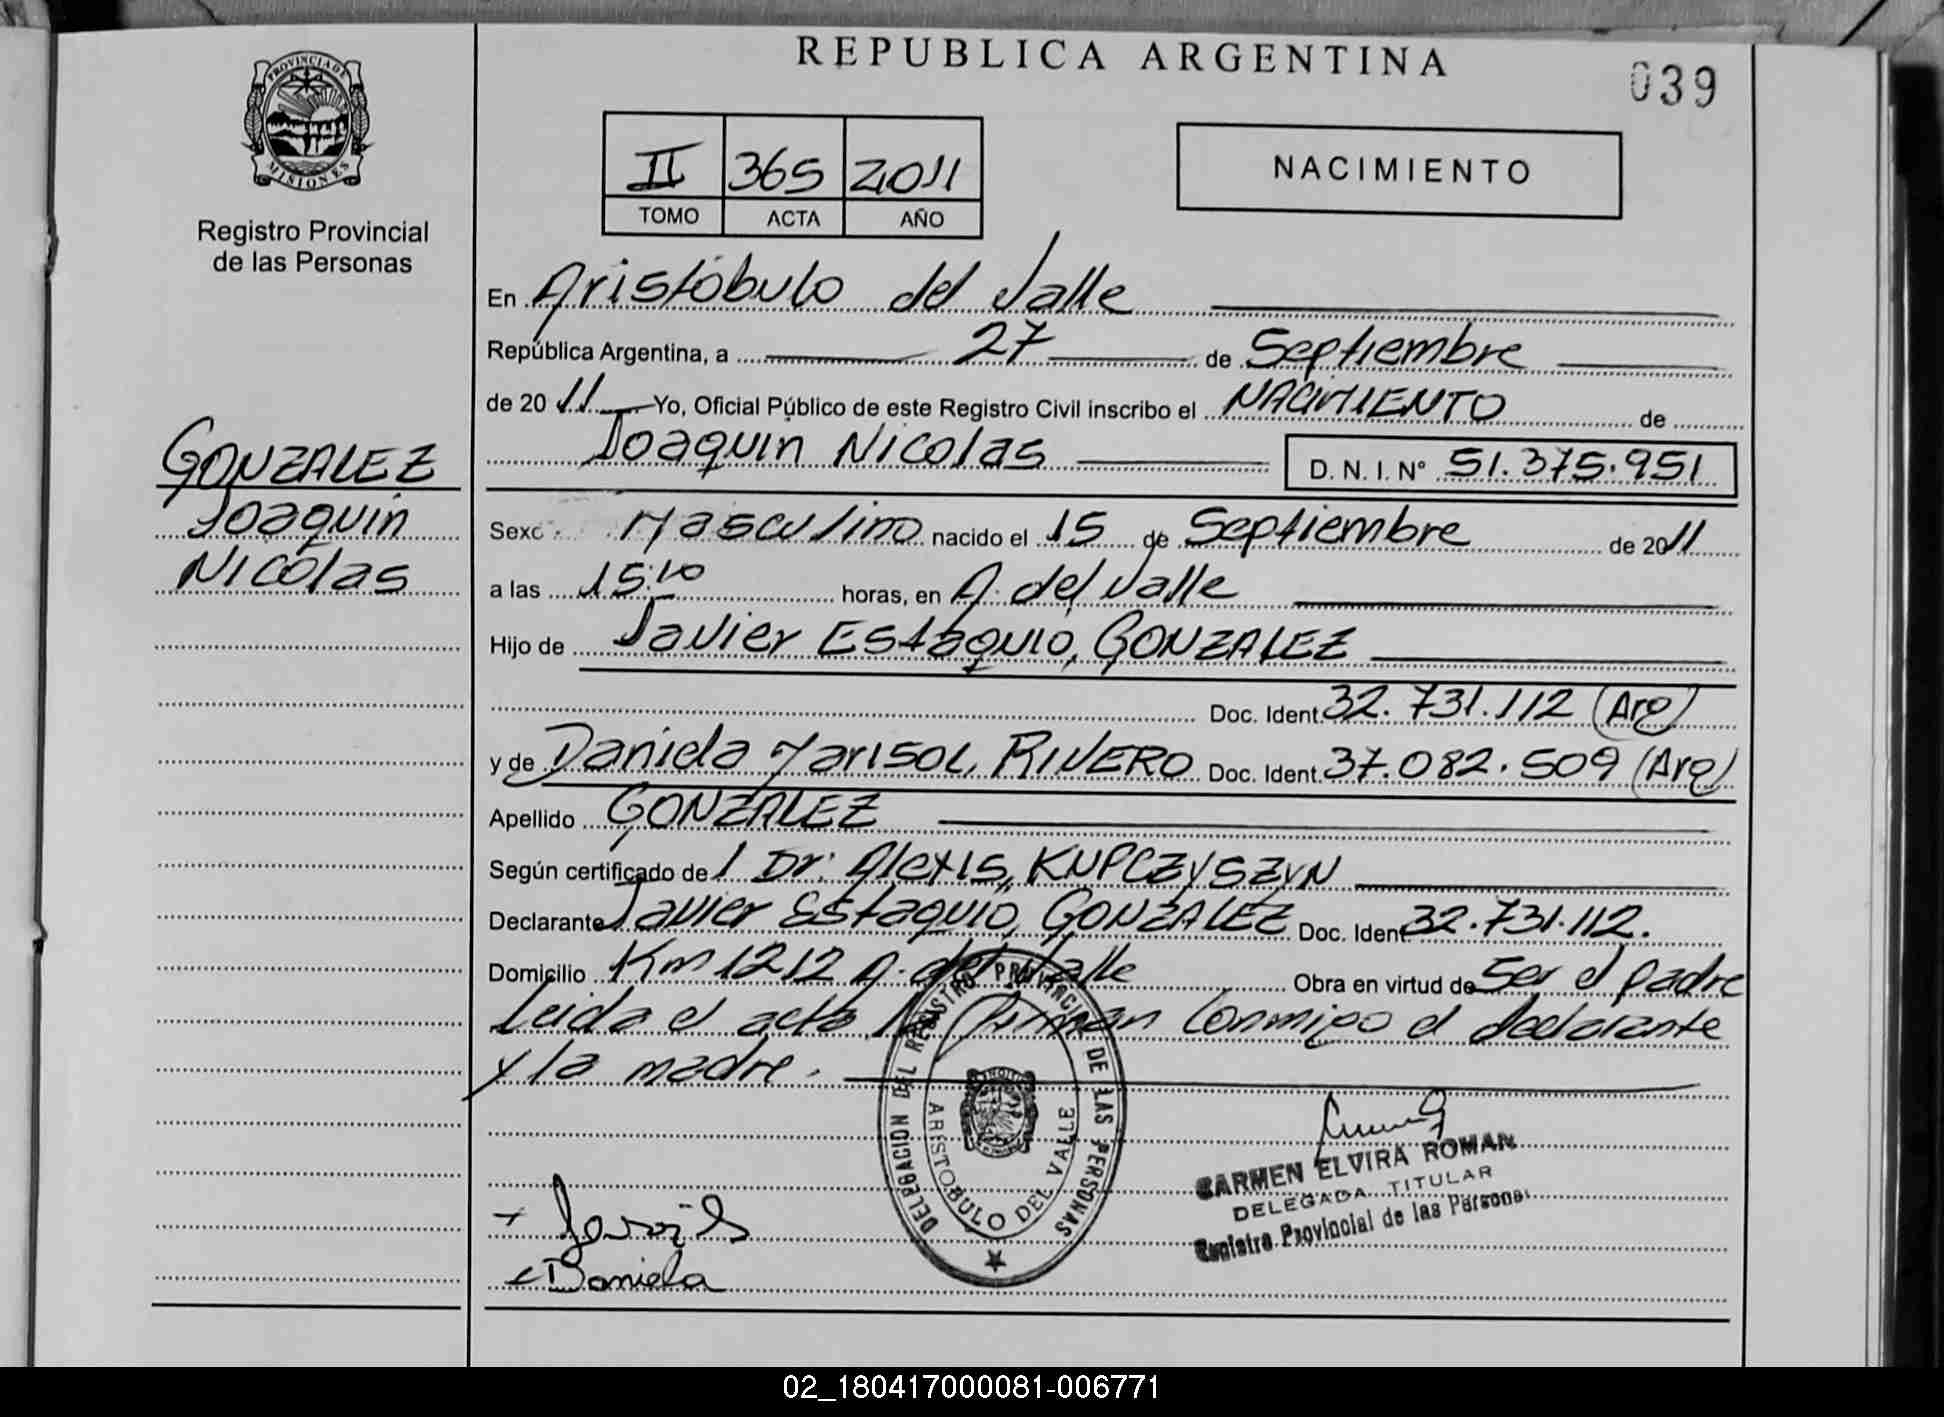 REPUBLICA ARGENTINA
039
PROVINCIA DE
MISIONES
Registro Provincial
de las Personas
II 365 2011
TOMO ACTA AÑO
NACIMIENTO
En Aristóbulo del Valle
República Argentina, a 27 de Septiembre
de 2011 Yo, Oficial Público de este Registro Civil inscribo el NACIMIENTO de
Joaquin Nicolas D. N. I. N° 51.375.951
GONZALEZ
Joaquin
Nicolas
Sexo Masculino nacido el 15 de Septiembre de 2011
a las 15:10 horas, en A. del Valle
Hijo de Javier Estaquio, GONZALEZ
Doc. Ident. 32.731.112 (Arg)
y de Daniela Marisol, RIVERO Doc. Ident. 37.082.509 (Arg)
Apellido GONZALEZ
Según certificado de / Dr: Alexis, KUPCZYSZYN
Declarante Javier Estaquio, GONZALEZ Doc. Ident. 32.731.112.
Domicilio Km 1212 A. del Valle Obra en virtud de Ser el padre
Leida el acta, Firman Conmigo el declarante
y la madre.
DELEGACION DEL REGISTRO PROVINCIAL DE LAS PERSONAS
ARISTOBULO DEL VALLE
CARMEN ELVIRA ROMAN
DELEGADA TITULAR
Registro Provincial de las Personas
Daniela
02_180417000081-006771